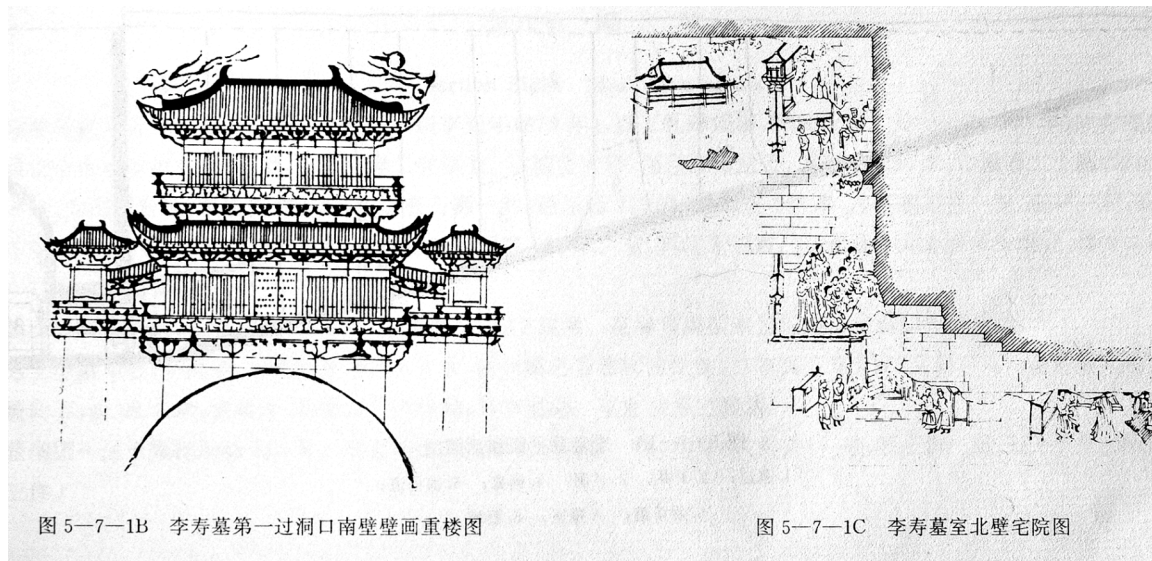 图 5—7—1B 李寿墓第一过洞口南壁壁画重楼图
图 5—7—1C 李寿墓室北壁宅院图